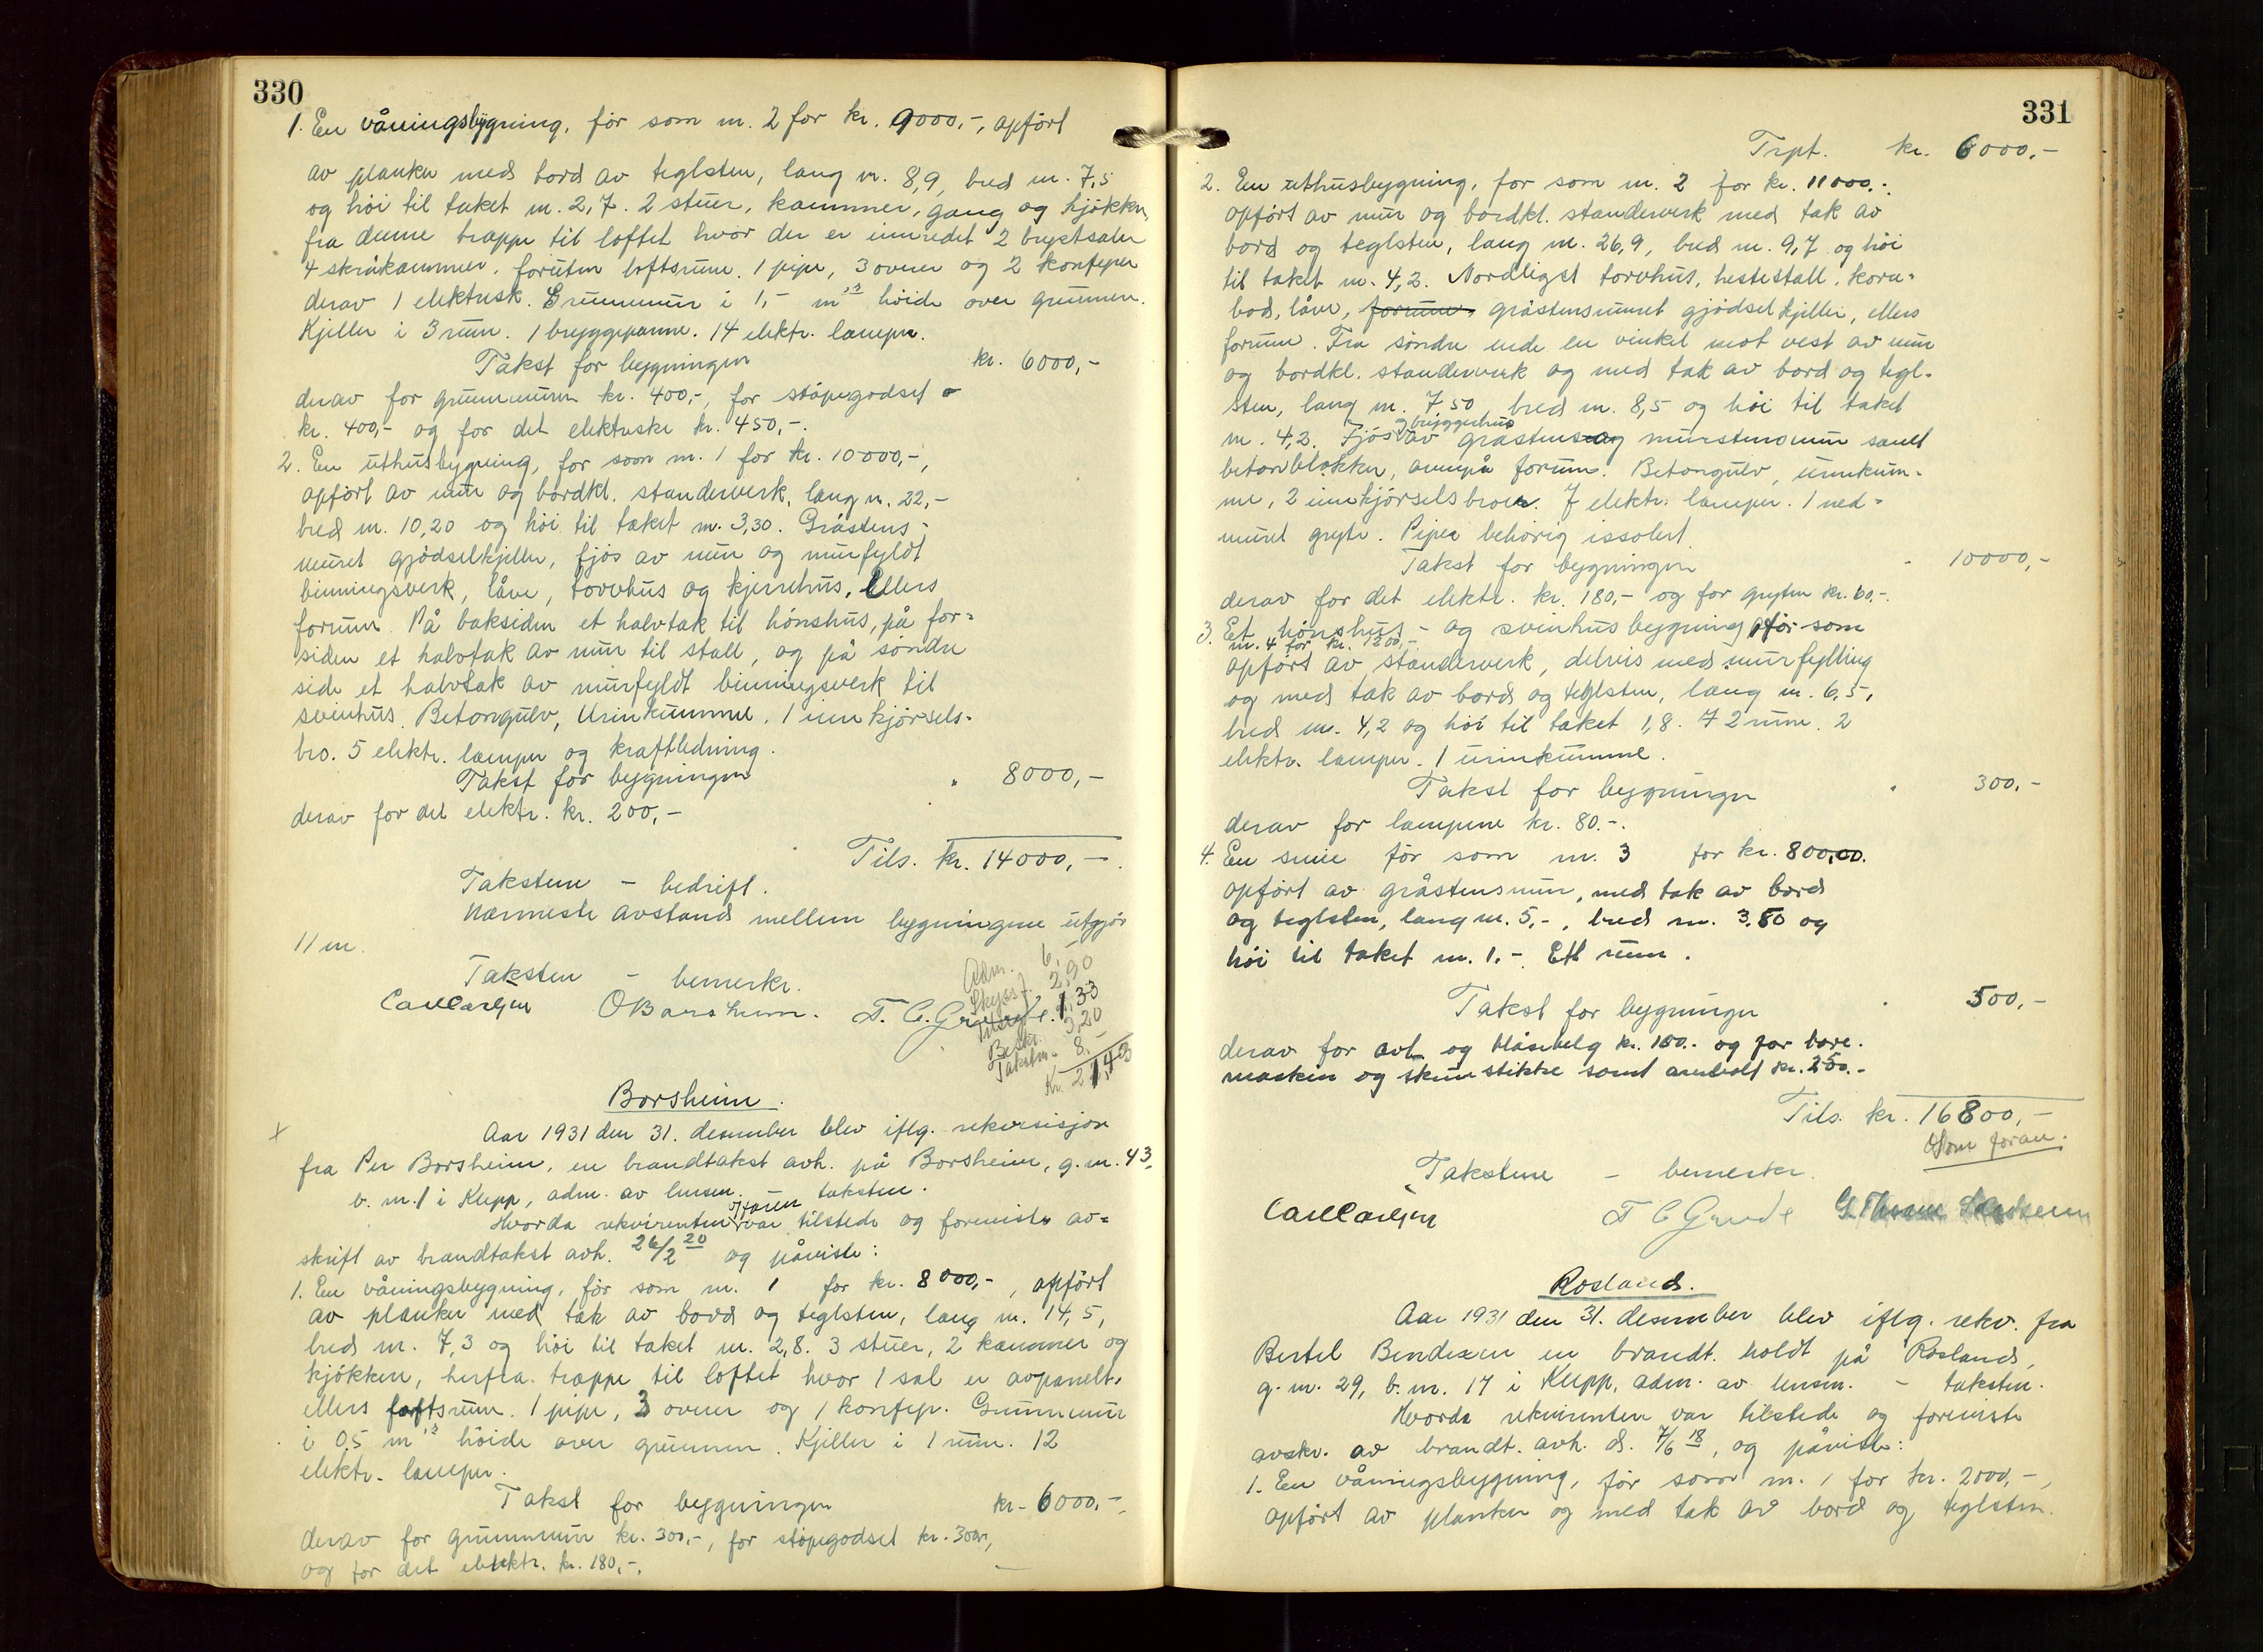 330
1. En våningsbygning, før som m. 2 for kr. 9000,-, opført
av planker med bord av teglsten, lang m. 8,9, bred m. 7,5
og høi til taket m. 2,7. 2 stuer, kammer, gang og kjøkken,
fra denne trappe til loftet hvor der er innredet 2 brystsaler
4 skråkammer, foruten loftsrum. 1 pipe, 3 ovner og 2 komfyrer
derav 1 elektrisk. Grunnmur i 1,- m's høide over grunnen.
Kjeller i 3 rum. 1 bryggepanne. 14 elektr. lamper.
Takst for bygningen kr. 6000,-
derav for grunnmuren kr. 400,-, for støpegodset
kr. 400,- og for det elektriske kr. 450,-.
2. En uthusbygning, for som m. 1 for kr. 10000,-,
opført av mur og bordkl. standerverk, lang m. 22,-
bred m. 10,20 og høi til taket m. 3,30. Gråstens-
muret gjødselkjeller, fjøs av mur og murfyldt
binningsverk, låve, torvhus og kjerrehus. Ellers
forrum. På baksiden et halvtak til hønshus, på for-
siden et halvtak av mur til stall, og på søndre
side et halvtak av murfyldt binningsverk til
svinhus. Betongulv, Urinkumme. 1 innkjørsels-
bro. 5 elektr. lamper og kraftledning.
Takst for bygningen " 8000,-
derav for det elektr. kr. 200,-
Tils. kr. 14000,-
Takstene - bedrift.
Nærmeste avstand mellem bygningene utgjør
11 m.
Taksten - bemerkr.
Carl Carlsen O Borsheim. T. C. Grude.
Adm. 6,-
Skyss f. 2,90
1,33
Beskr. 3,20
Takstm. 8.-
Kr. 21,43
Borsheim.
Aar 1931 den 31. desember blev iflg. rekvisisjon
fra Per Borsheim, en brandtakst avh. på Borsheim, g.m. 43,
b. m. 1 i Klepp, adm. av lensm. - taksten.
Hvorda rekvirenten var tilstede og foreviste av-
skrift av brandtakst avh. 26/2 20 og påviste:
1. En våningsbygning, før som m. 1 for kr. 8000,-, opført
av planker med tak av bord og teglsten, lang m. 14,5,
bred m. 7,3 og høi til taket m. 2,8. 3 stuer, 2 kammer og
kjøkken, herfra trappe til loftet hvor 1 sal er avpanelt,
ellers loftsrum. 1 pipe, 3 ovner og 1 komfyr. Grunnmur
i 0,5 m's høide over grunnen. Kjeller i 1 rum. 12
elektr. lamper.
Takst for bygningen kr. 6000,-
derav for grunnmur kr. 300,-, for støpegodset kr. 300,-,
og for det elektr. kr. 180,-.
331
Trpt. kr. 6000,-
2. En uthusbygning, for som m. 2 for kr. 11000,-
opført av mur og bordkl. standerverk med tak av
bord og teglsten, lang m. 26,9, bred m. 9,7 og høi
til taket m. 4,2. Nordligst torvhus, hestestall, korn-
bod, låve, forrum, gråstensmuret gjødselkjeller, ellers
forrum. Fra søndre ende en vinkel mot vest av mur
og bordkl. standerverk og med tak av bord og tegl-
sten, lang m. 7,50 bred m. 8,5 og høi til taket
og bryggerhus
m. 4,2. Fjøs av gråstens og murstensmur samt
betonblokker, ovenpå forrum. Betongulv, urinkum-
me, 2 innkjørselsbroer. 7 elektr. lamper. 1 ned-
muret gryte. Pipen behørig issolert.
Takst for bygningen " 10000,-
derav for det elektr. kr. 180,- og for gryten kr. 60,-.
3. Et hønshus- og svinhusbygning før som
m. 4 for kr. 1200,-
opført av standerverk, delvis med murfylling
og med tak av bord og teglsten, lang m. 6,5,
bred m. 4,2 og høi til taket 1,8. 2 rum. 2
elektr. lamper. 1 urinkumme.
Takst for bygningen " 300,-
derav for lampene kr. 80.-.
4. En smie før som m. 3 for kr. 800,00.
opført av gråstensmur, med tak av bord
og teglsten, lang m. 5,-, bred m. 3.80 og
høi til taket m. 1.-. Ett rum.
Takst for bygningen " 500,-
derav for avl og blåsebelg kr. 100.- og for bore-
maskin og skruestikke samt ambolt kr. 250.-
Tils. kr. 16800,-
Som foran.
Takstene - bemerkr.
Carl Carlsen T C Grude
Rosland.
Aar 1931 den 31. desember blev iflg. rekv. fra
Bertel Bendixen en brandt. holdt på Rosland,
g. m. 29, b. m. 17 i Klepp, adm. av lensm. - taksten.
Hvorda rekvirenten var tilstede og foreviste
avskr. av brandt. avh. d. 7/6 18, og påviste:
1. En våningsbygning, før som m. 1 for kr. 2000,-,
opført av planker og med tak av bord og teglsten.